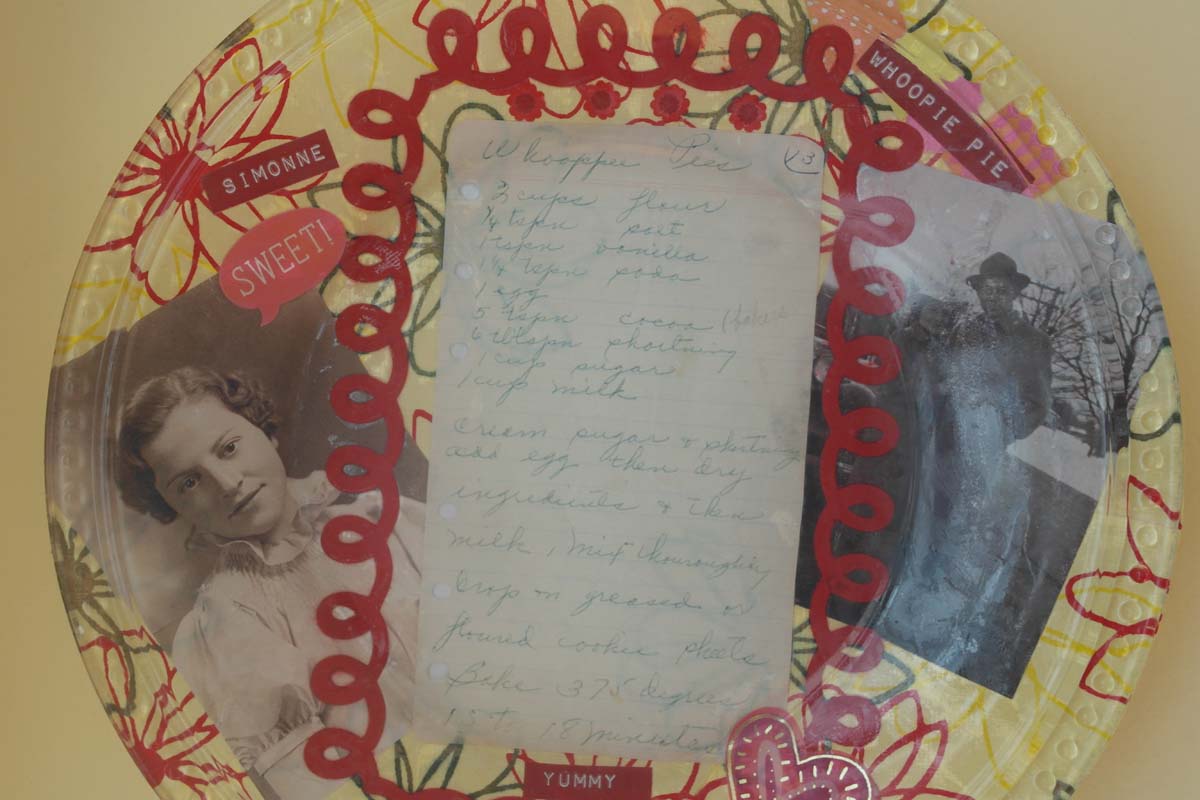 SIMONNE
SWEET!
WHOOPIE PIE
Whooppee Pies
2 cups flour
1/4 tspn salt
1 tspn vanilla
1 1/4 tspn soda
1 egg
5 tspn cocoa
6 tblspn shortning
1 cup sugar
1 cup milk
Cream sugar & shortning
add egg then dry
ingredients & then
milk, mix thouroughly
Drop on greased or
floured cookie sheets
Bake 375 degrees
15 to 18 minutes
YUMMY